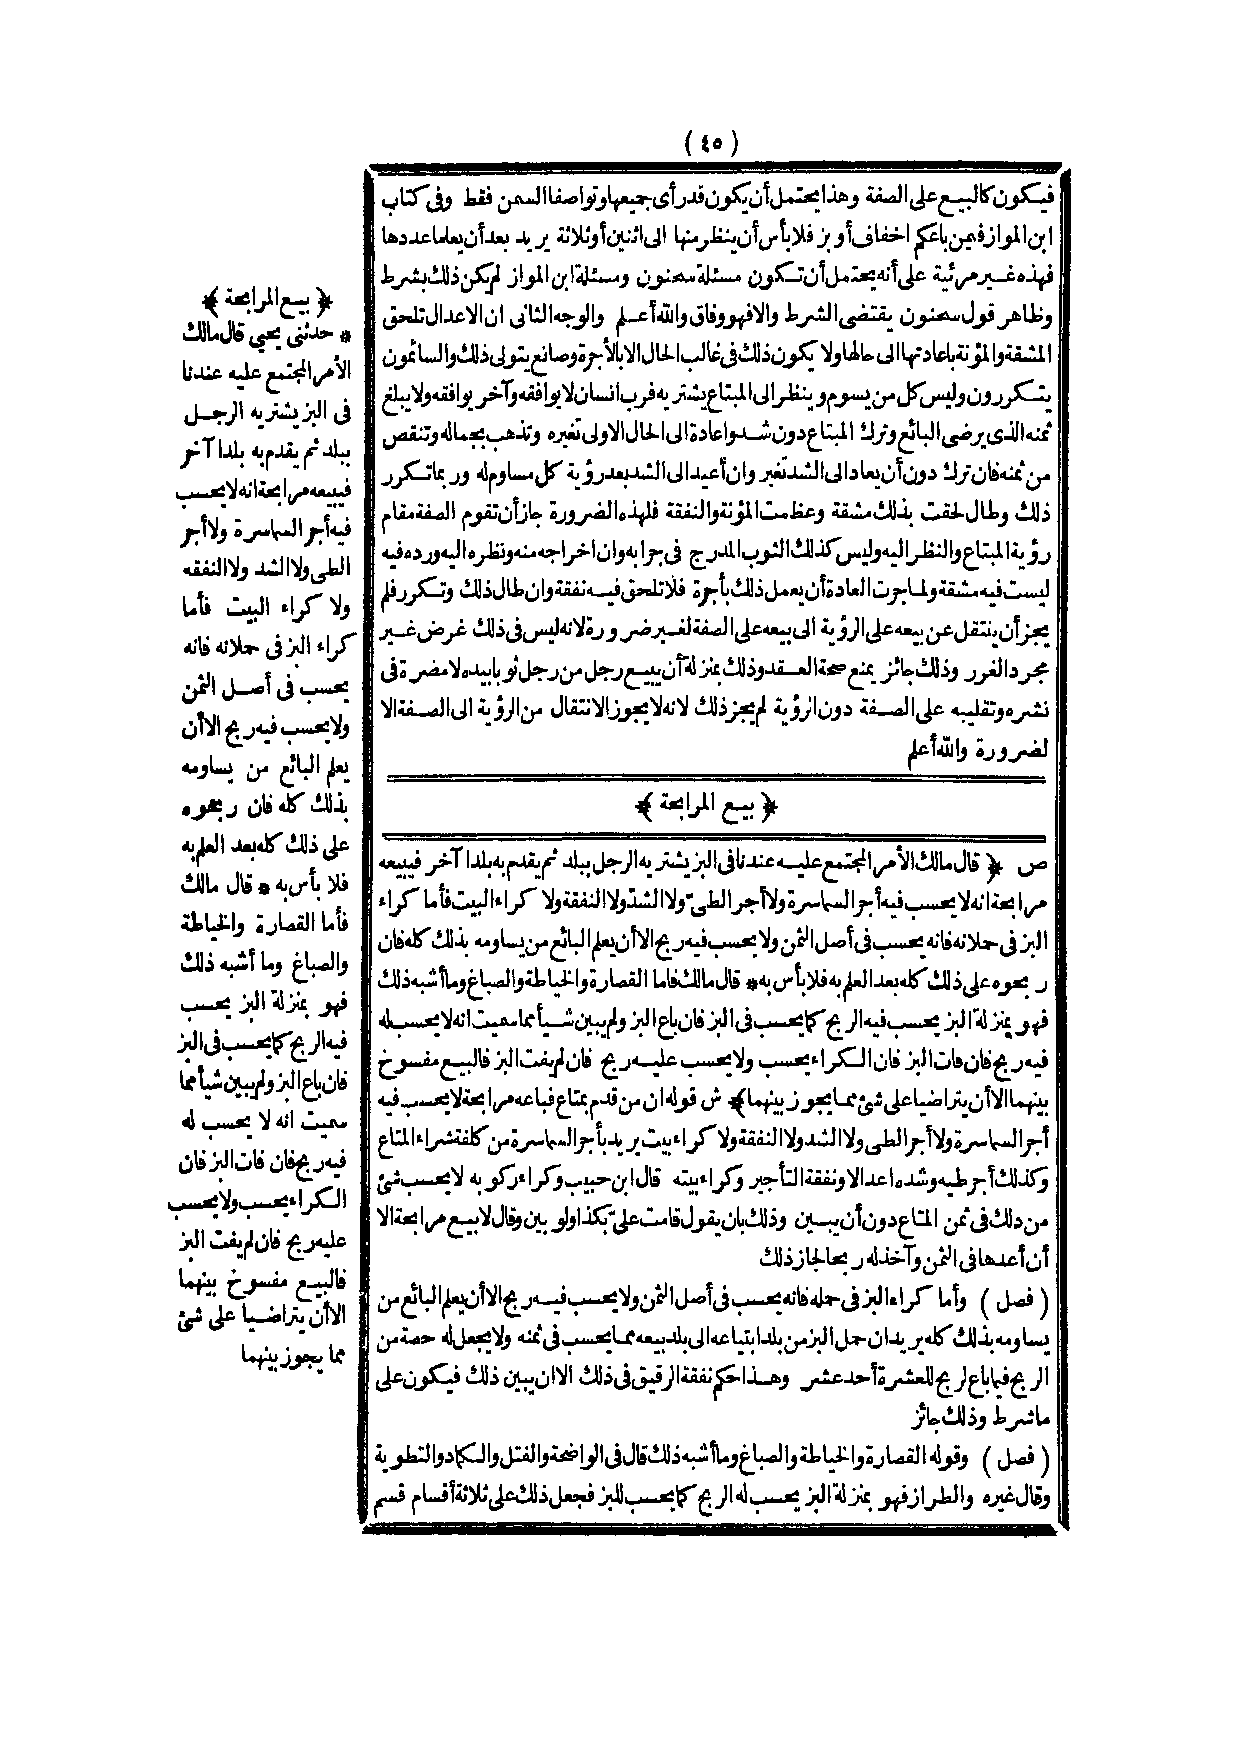 ( ٤٥ )
فيكون كالبيع على الصفة وهذا يحتمل أن يكون قد رأى جميعها وتواصفا السمن فقط وفى كتاب
ابن المواز فيمن باع كم اخفاف أو بز فلا بأس أن ينظر منها الى اثنين أو ثلاثة يريد بعد أن يعلما عددها
فهذه غير مرئية على أنه يحتمل أن تكون مسئلة سحنون ومسئلة ابن المواز لم يكن ذلك بشرط
وظاهر قول سحنون يقتضى الشرط والافهو وفاق والله أعلم والوجه الثانى ان الاعدال تلحق
المشقة والمؤنة باعادتها الى حالها ولا يكون ذلك فى غالب الحال الا بالأجرة وصانع يتولى ذلك والسائمون
يتكررون وليس كل من يسوم وينظر الى المبتاع يشتريه فرب انسان لا يوافقه وآخر يوافقه ولا يبلغ
ثمنه الذى يرضى البائع وترك المبتاع دون شد واعادة الى الحال الاولى تغيره وتذهب بجماله وتنقص
من ثمنه فان ترك دون أن يعاد الى الشد تغير وان أعيد الى الشد بعد رؤية كل مساوم له وربما تكرر
ذلك وطال لحقت بذلك مشقة وعظمت المؤنة والنفقة فلهذه الضرورة جاز أن تقوم الصفة مقام
رؤية المبتاع والنظر اليه وليس كذلك الثوب المدرج فى جرابه وان اخراجه منه ونظره اليه ورده فيه
ليست فيه مشقة ولما جرت العادة أن يعمل ذلك بأجرة فلا تلحق فيه نفقة وان طال ذلك وتكرر فلم
يجز أن ينتقل عن بيعه على الرؤية الى بيعه على الصفة لغير ضرورة لانه ليس فى ذلك غرض غير
مجرد الغرر وذلك جائز يمنع صحة العقد وذلك بمنزلة أن يبيع رجل من رجل ثوبا بيده لا مضرة فى
نشره وتقليبه على الصفة دون الرؤية لم يجز ذلك لانه لا يجوز الانتقال من الرؤية الى الصفة الا
لضرورة والله أعلم
﴿ بيع المرابحة ﴾
ص ﴿ قال مالك الأمر المجتمع عليه عندنا فى البز يشتريه الرجل ببلد ثم يقدم به بلدا آخر فيبيعه
مرابحة انه لا يحسب فيه أجر السماسرة ولا أجر الطىّ ولا الشد ولا النفقة ولا كراء البيت فأما كراء
البز فى حملانه فانه يحسب فى أصل الثمن ولا يحسب فيه ربح الا أن يعلم البائع من يساومه بذلك كله فان
ربحوه على ذلك كله بعد العلم به فلا بأس به * قال مالك فاما القصارة والخياطة والصباغ وما أشبه ذلك
فهو بمنزلة البز يحسب فيه الربح كما يحسب فى البز فان باع البز ولم يبين شيأ مما سميت انه لا يحسب له
فيه ربح فان فات البز فان الكراء يحسب ولا يحسب عليه ربح فان لم يفت البز فالبيع مفسوخ
بينهما الا أن يتراضيا على شئ مما يجوز بينهما ﴾ ش قوله ان من قدم بمتاع فباعه مرابحة لا يحسب فيه
أجر السماسرة ولا أجر الطى ولا الشد ولا النفقة ولا كراء بيت يريد بأجر السماسرة من كلفة شراء المتاع
وكذلك أجر طيه وشده اعدالا ونفقة التأجير وكراء بيته قال ابن حبيب وكراء ركوبه لا يحسب شئ
من ذلك فى ثمن المتاع دون أن يبين وذلك بان يقول قامت علىّ بكذا ولو بين وقال لا بيع مرابحة الا
أن أعدها فى الثمن وآخذ له ربحا لجاز ذلك
( فصل ) وأما كراء البز فى حمله فانه يحسب فى أصل الثمن ولا يحسب فيه ربح الا أن يعلم البائع من
يساومه بذلك كله يريد ان حمل البز من بلد ابتياعه الى بلد بيعه مما يحسب فى ثمنه ولا يجعل له حصة من
الربح فيما باع لربح للعشرة أحد عشر وهذا حكم نفقة الرقيق فى ذلك الا ان يبين ذلك فيكون على
ما شرط وذلك جائز
( فصل ) وقوله القصارة والخياطة والصباغ وما أشبه ذلك قال فى الواضحة والفتل والكماد والتطوية
وقال غيره والطراز فهو بمنزلة البز يحسب له الربح كما يحسب للبز فجعل ذلك على ثلاثة أقسام قسم
﴿ بيع المرابحة ﴾
* حدثنى يحيى قال مالك
الأمر المجتمع عليه عندنا
فى البز يشتريه الرجل
ببلد ثم يقدم به بلدا آخر
فيبيعه مرابحة انه لا يحسب
فيه أجر السماسرة ولا أجر
الطى ولا الشد ولا النفقه
ولا كراء البيت فأما
كراء البز فى حملانه فانه
يحسب فى أصل الثمن
ولا يحسب فيه ربح الا أن
يعلم البائع من يساومه
بذلك كله فان ربحوه
على ذلك كله بعد العلم به
فلا بأس به * قال مالك
فأما القصارة والخياطة
والصباغ وما أشبه ذلك
فهو بمنزلة البز يحسب
فيه الربح كما يحسب فى البز
فان باع البز ولم يبين شيأ مما
سميت انه لا يحسب له
فيه ربح فان فات البز فان
الكراء يحسب ولا يحسب
عليه ربح فان لم يفت البز
فالبيع مفسوخ بينهما
الا أن يتراضيا على شئ
مما يجوز بينهما